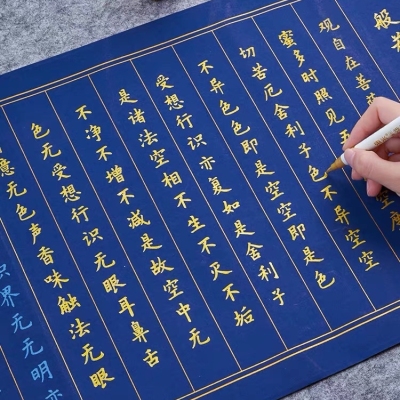 般若
观自在菩
蜜多时照见五空度
切苦厄舍利子色不异空空
不异色色即是空空即是色
受想行识亦复如是舍利子
是诸法空相不生不灭不垢
不净不增不减是故空中无
色无受想行识无眼耳鼻舌
意无色声香味触法无眼
识界无无明亦